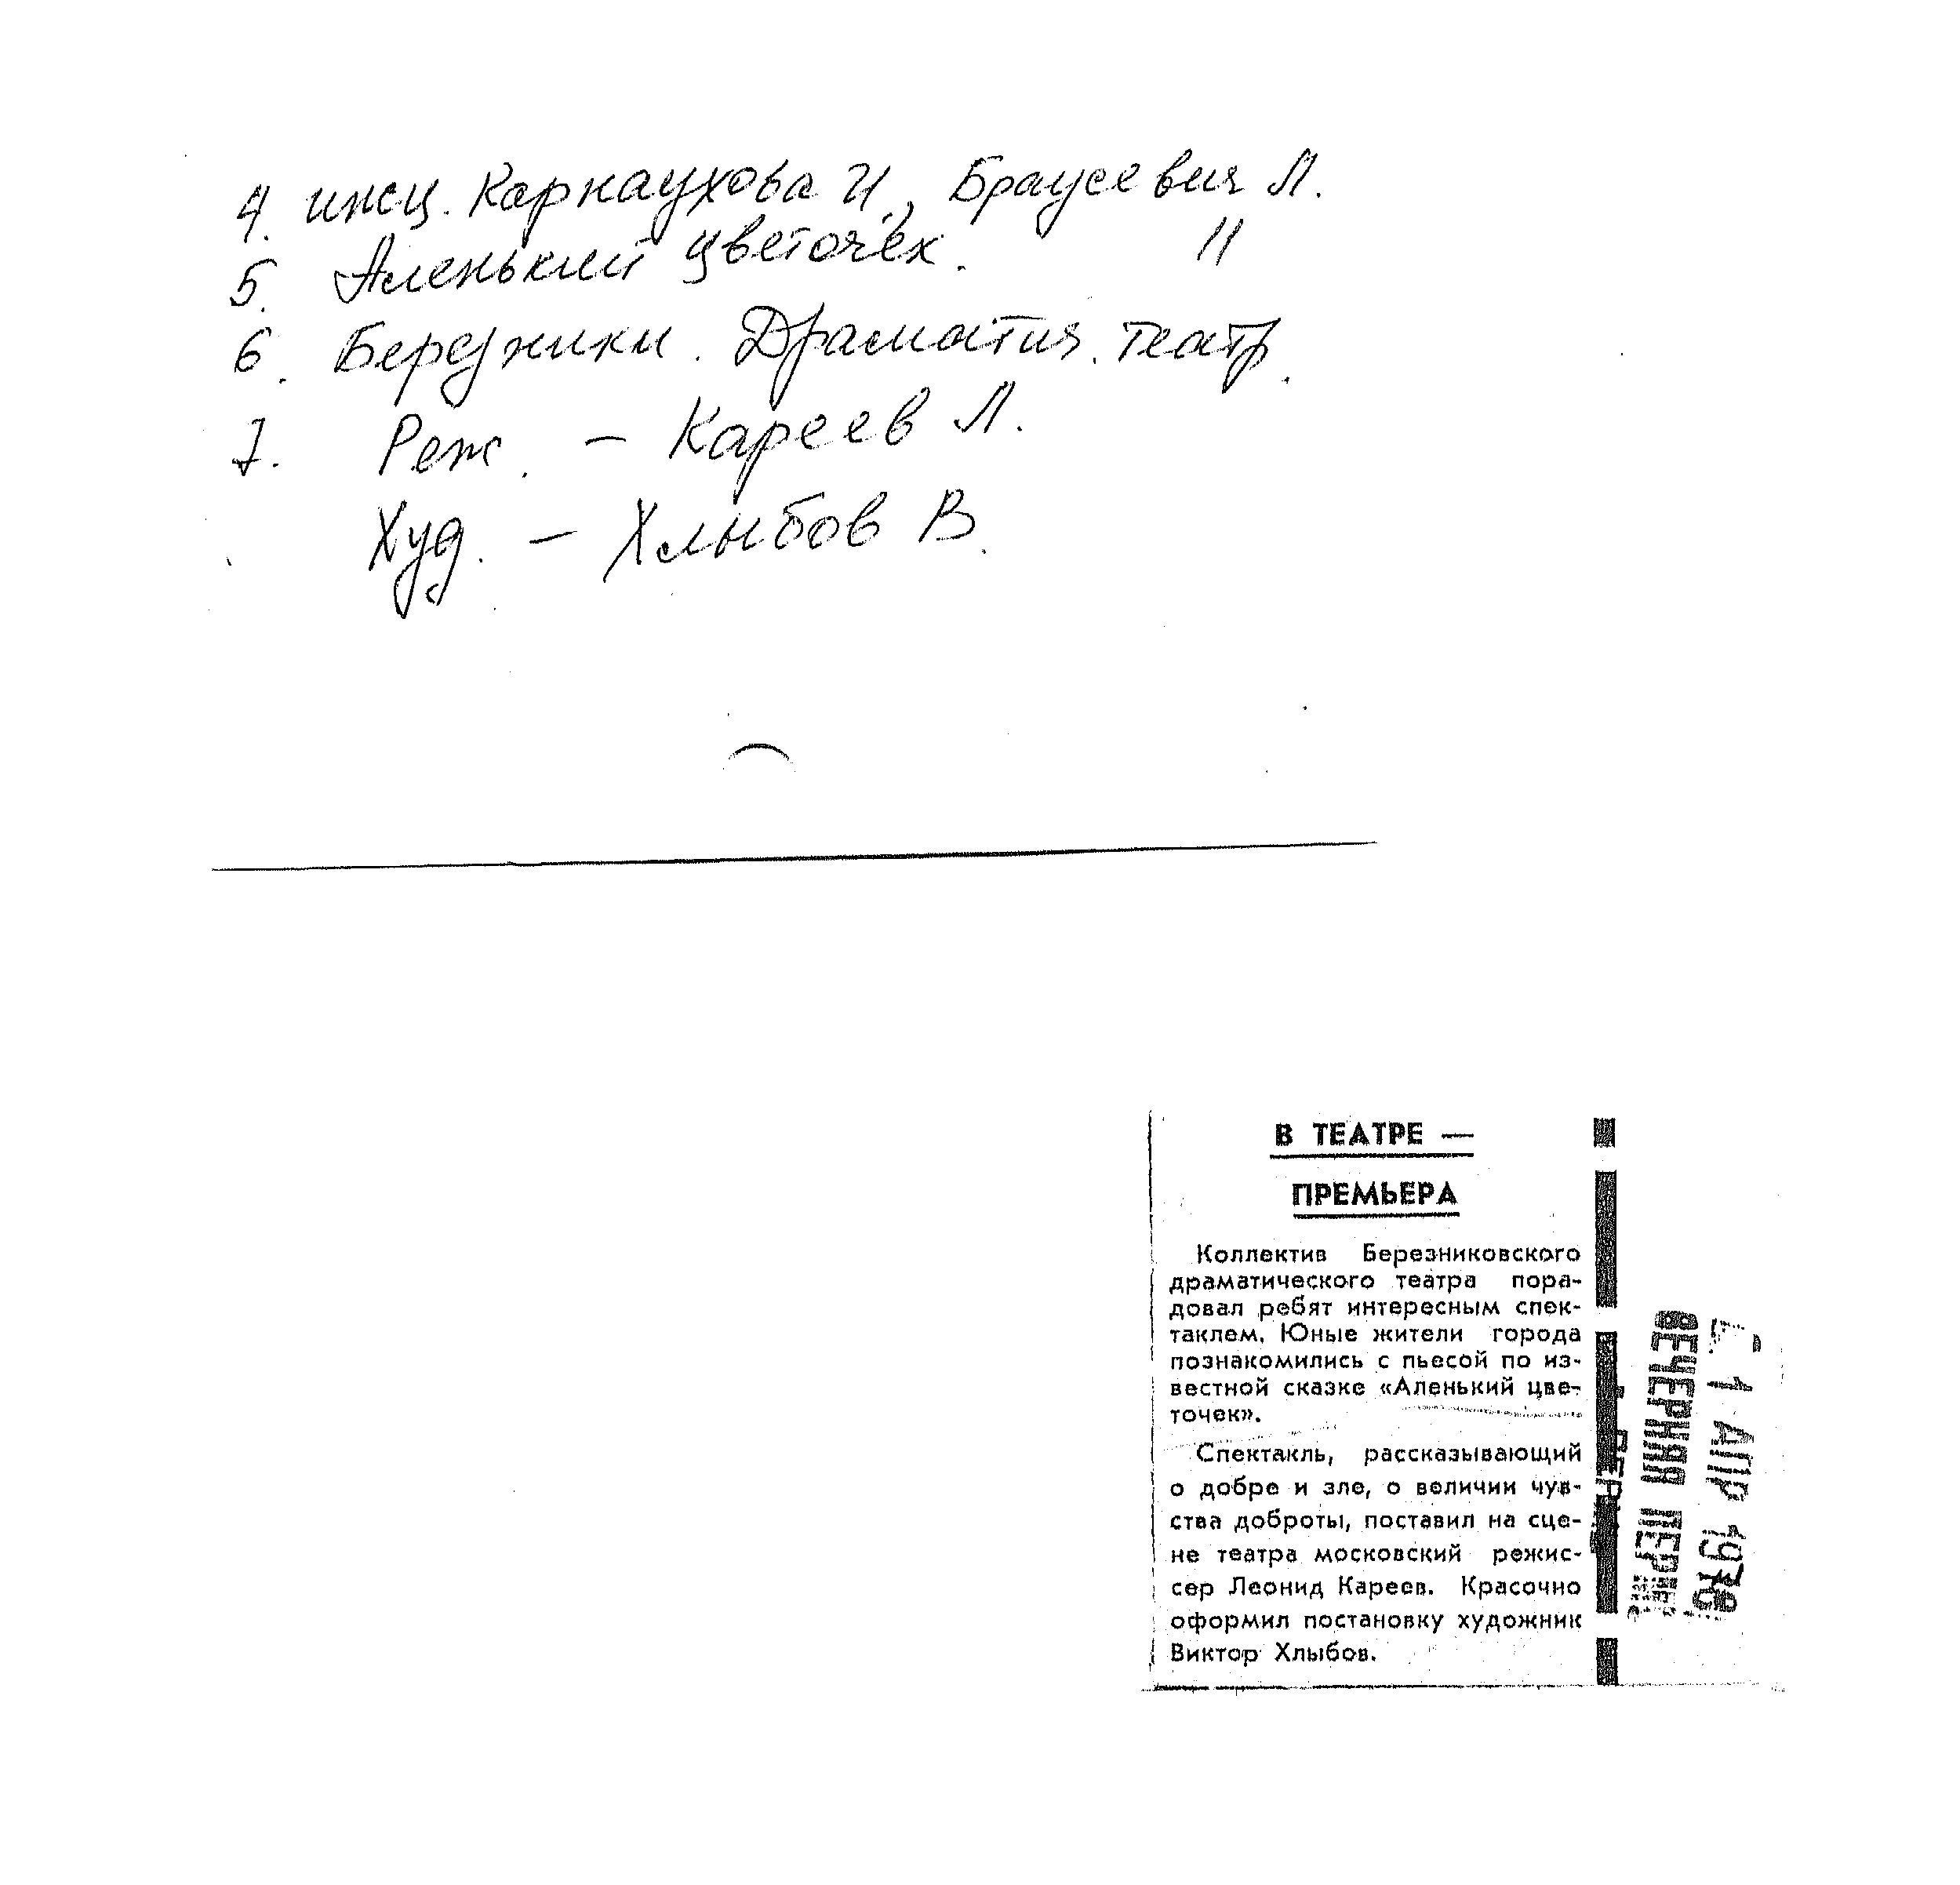 4. инсц. Карнаухова И., Браусевич Л.
5. Аленький цветочек. "
6. Березники. Драматич. театр.
7. Реж. – Кареев Л.
Худ. – Хлыбов В.
В ТЕАТРЕ —
ПРЕМЬЕРА
Коллектив Березниковского
драматического театра пора-
довал ребят интересным спек-
таклем. Юные жители города
познакомились с пьесой по из-
вестной сказке «Аленький цве-
точек».
Спектакль, рассказывающий
о добре и зле, о величии чув-
ства доброты, поставил на сце-
не театра московский режис-
сер Леонид Кареев. Красочно
оформил постановку художник
Виктор Хлыбов.
ВЕЧЕРНЯЯ ПЕРМЬ
1 АПР